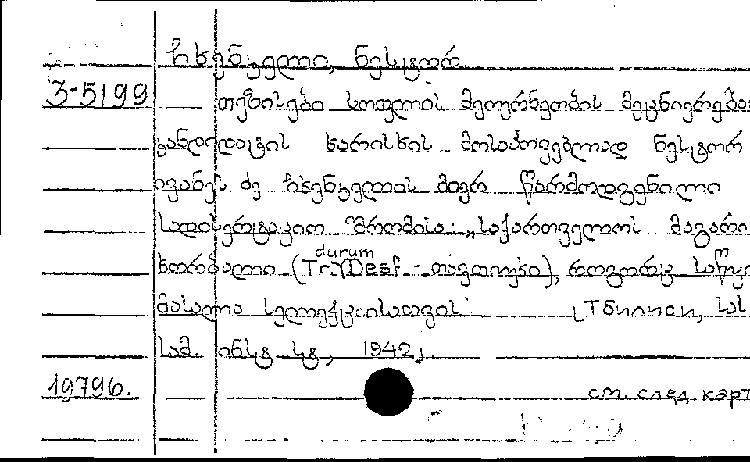 ჩხენკელი, ნესტორ
3-5199 თეზისები სოფლის მეურნეობის მეცნიერება
კანდიდატის ხარისხის მოსაპოვებლად ნესტორ
ივანეს ძე ჩხენკელის მიერ წარმოდგენილი
სადისერტაციო შრომისა: „საქართველოს მაგარი
ხორბალი (Tr. durum Desf. - თავთუხი), როგორც საწყ
მასალა სელექციისათვის" [Тбилиси, სას.
სამ. ინსტ. სტ., 1942].
19796. см. след. карт